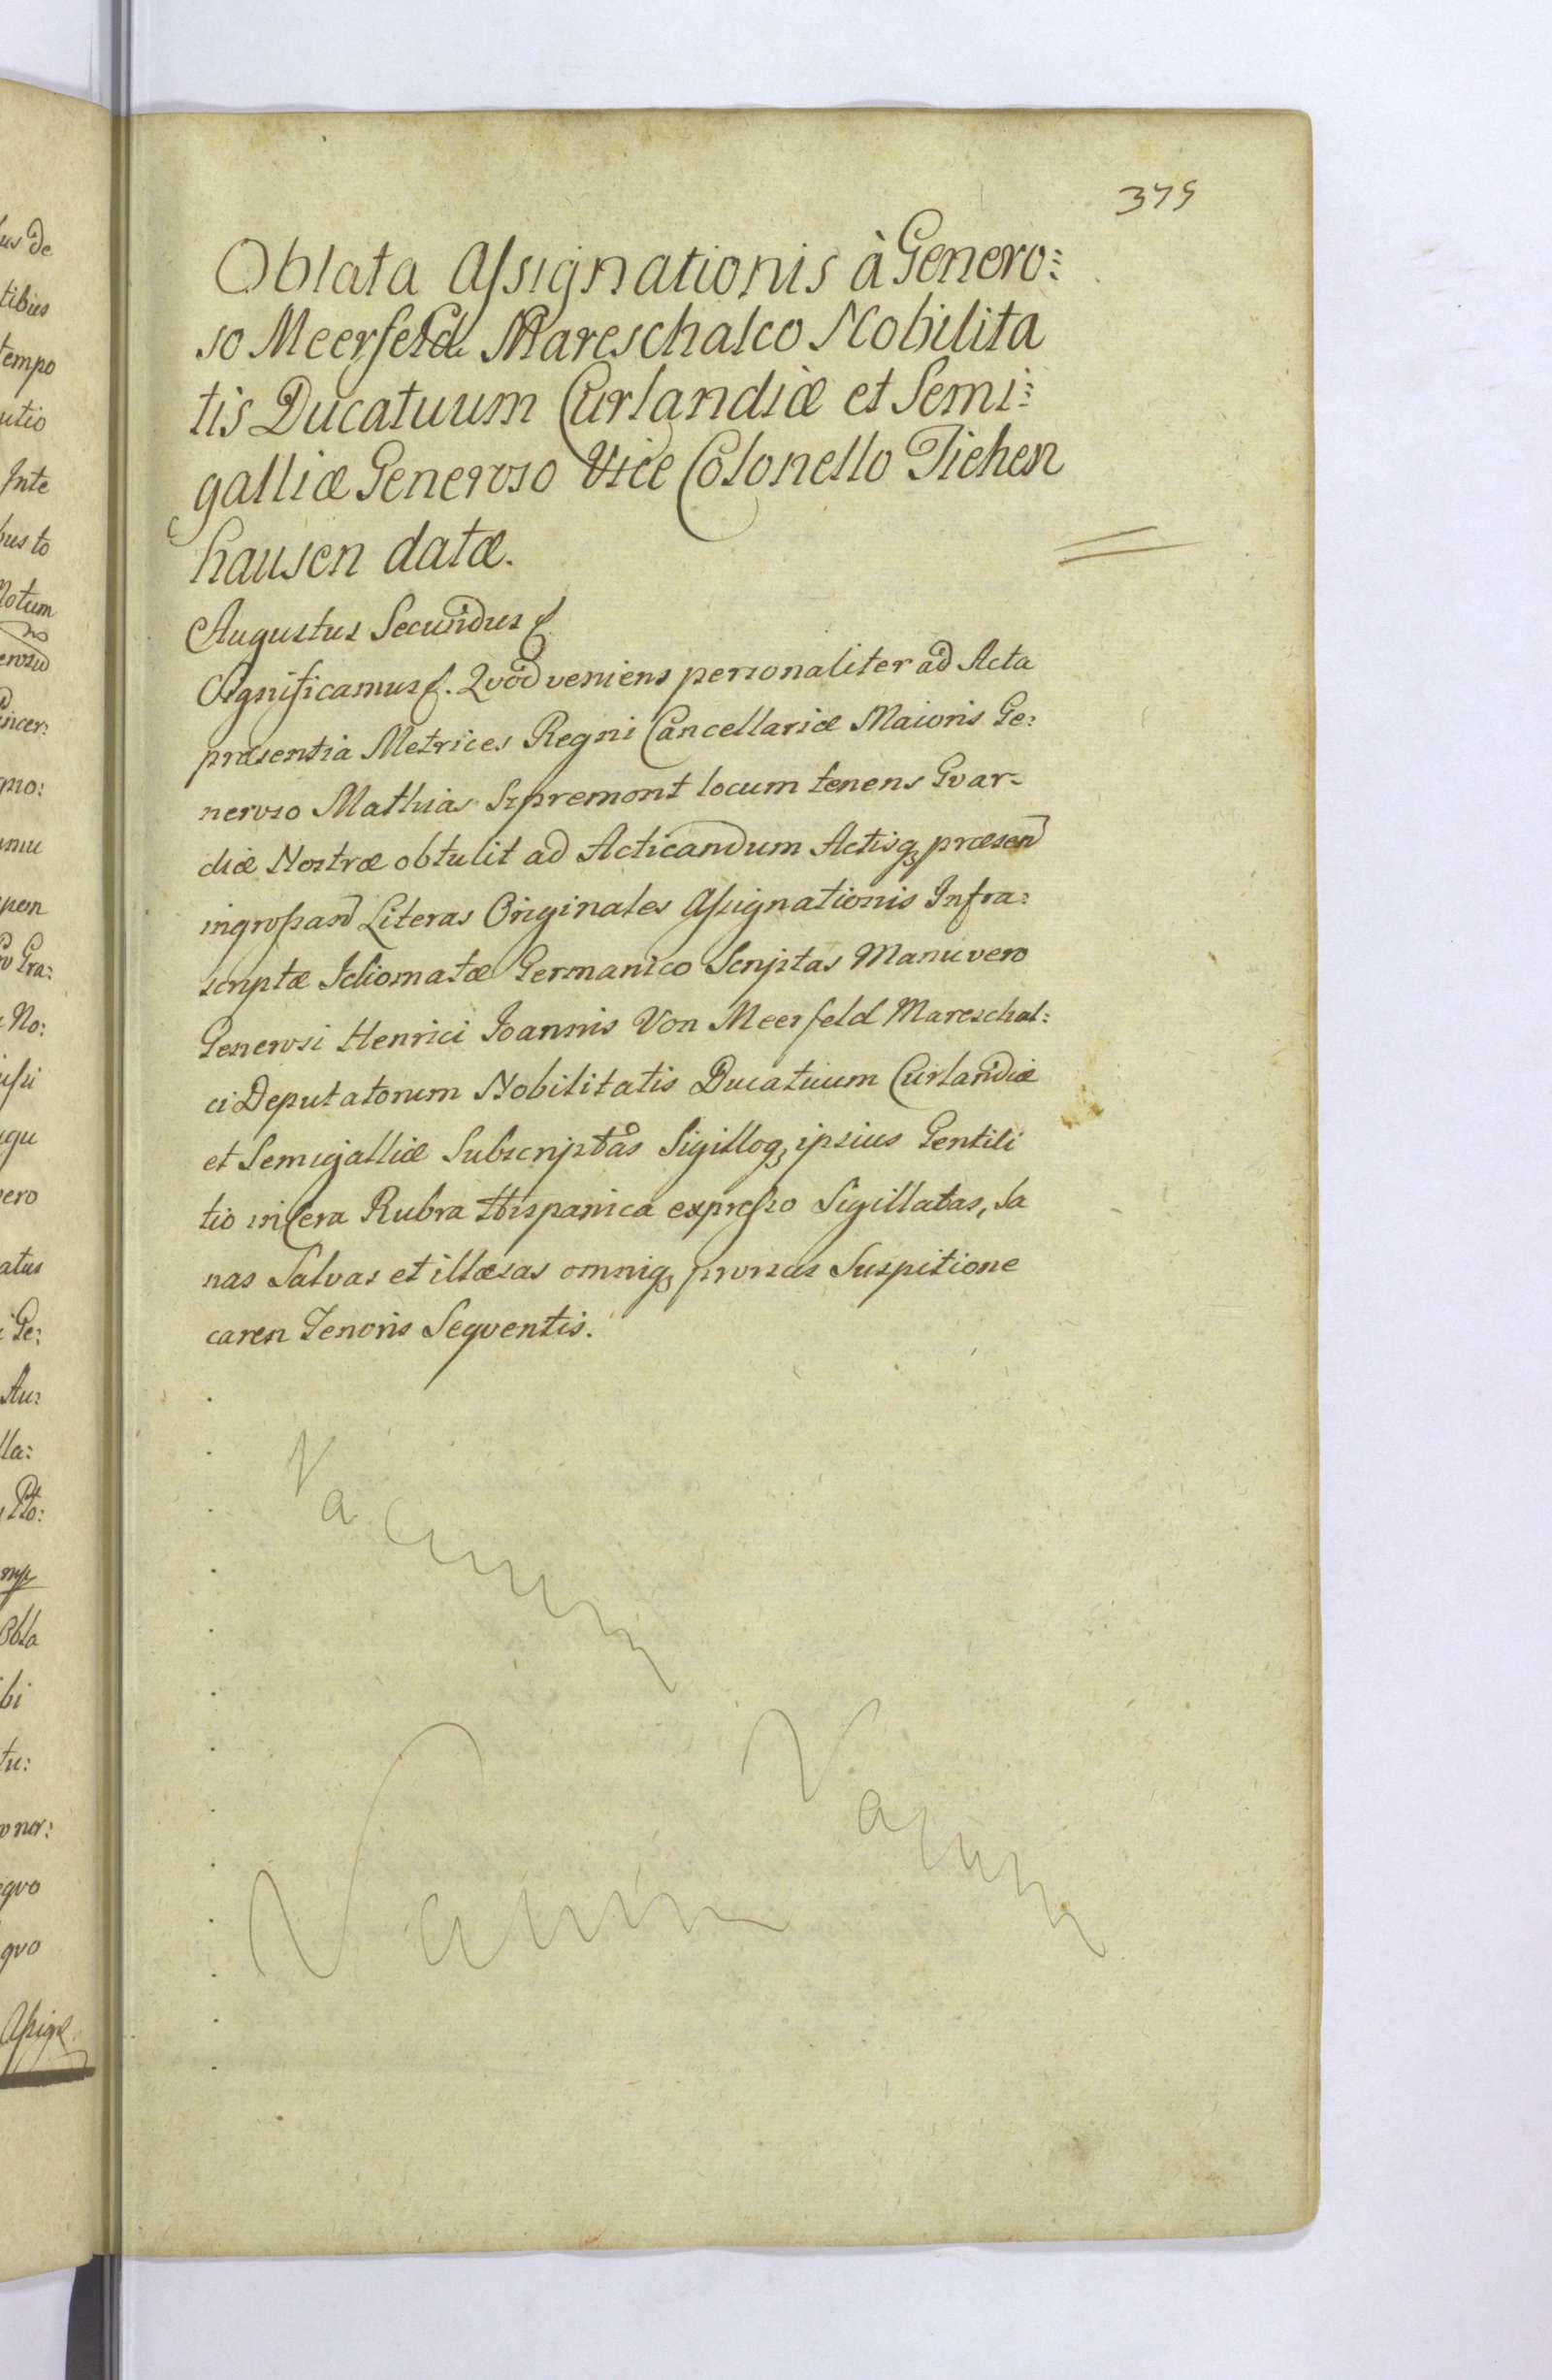 375
Oblata Assignationis à Genero:
so Meerfeld Mareschalco Nobilita
tis Ducatuum Curlandiæ et Semi:
galliæ Generoso Vice Colonello Tiehen
hausen datæ.
Augustus Secundus
Significamus. Qvod veniens personaliter ad Acta
præsentia Metrices Regni Cancellariæ Maioris Ge:
neroso Mathias Szpremont locum tenens Gvar-
diæ Nostræ obtulit ad Acticandum Actisq, præsen
ingrossand Literas Originales Assignationis Infra:
scriptæ Idiomatæ Germanico Scriptas Manu vero
Generosi Henrici Ioannis Von Meerfeld Mareschal:
ci Deputatorum Nobilitatis Ducatuum Curlandiæ
et Semigalliæ Subscriptas Sigilloq, ipsius Gentili
tio in Cera Rubra Hispanica expresso Sigillatas, Sa
nas Salvas et illæsas omniq, prorsus Suspitione
caren Tenoris Seqventis.
Vacuum
Vacuum
Vacuum
us de
tibus
tempo
utio
Inte
bus to
Notum
incer:
mo:
pen
Gra:
No:
igu
vero
atus
i Ge:
Au:
lla:
Obla
bi
tu:
egvo
qvo